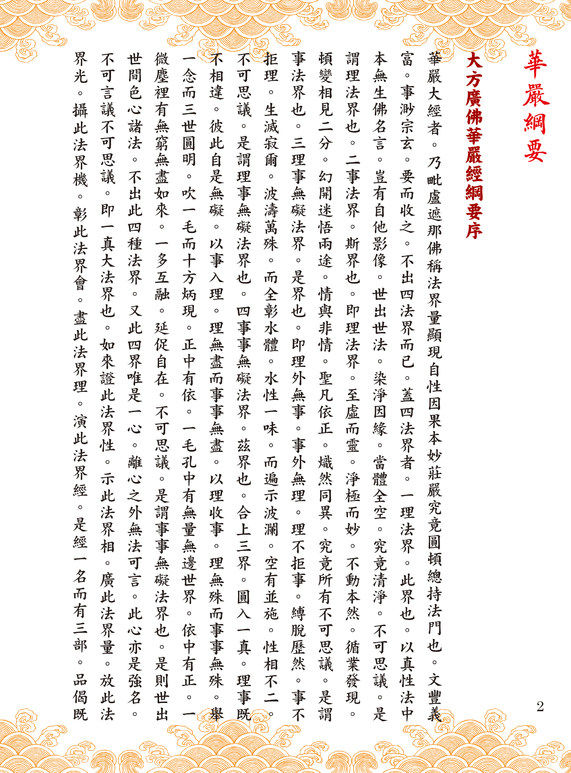 華嚴綱要
大方廣佛華嚴經綱要序
華嚴大經者。乃毗盧遮那佛稱法界量顯現自性因果本妙莊嚴究竟圓頓總持法門也。文豐義
富。事渺宗玄。要而收之。不出四法界而已。蓋四法界者。一理法界。此界也。以真性法中
本無生佛名言。豈有自他影像。世出世法。染淨因緣。當體全空。究竟清淨。不可思議。是
謂理法界也。二事法界。斯界也。即理法界。至虛而靈。淨極而妙。不動本然。循業發現。
頓變相見二分。幻開迷悟兩途。情與非情。聖凡依正。熾然同異。究竟所有不可思議。是謂
事法界也。三理事無礙法界。是界也。即理外無事。事外無理。理不拒事。縛脫歷然。事不
拒理。生滅寂爾。波濤萬殊。而全彰水體。水性一味。而遍示波瀾。空有並施。性相不二。
不可思議。是謂理事無礙法界也。四事事無礙法界。茲界也。合上三界。圓入一真。理事既
不相違。彼此自是無礙。以事入理。理無盡而事事無盡。以理收事。理無殊而事事無殊。舉
一念而三世圓明。吹一毛而十方炳現。正中有依。一毛孔中有無量無邊世界。依中有正。一
微塵裡有無窮無盡如來。一多互融。延促自在。不可思議。是謂事事無礙法界也。是則世出
世間色心諸法。不出此四種法界。又此四界唯是一心。離心之外無法可言。此心亦是強名。
不可言議不可思議。即一真大法界也。如來證此法界性。示此法界相。廣此法界量。放此法
界光。攝此法界機。彰此法界會。盡此法界理。演此法界經。是經一名而有三部。品偈既
2